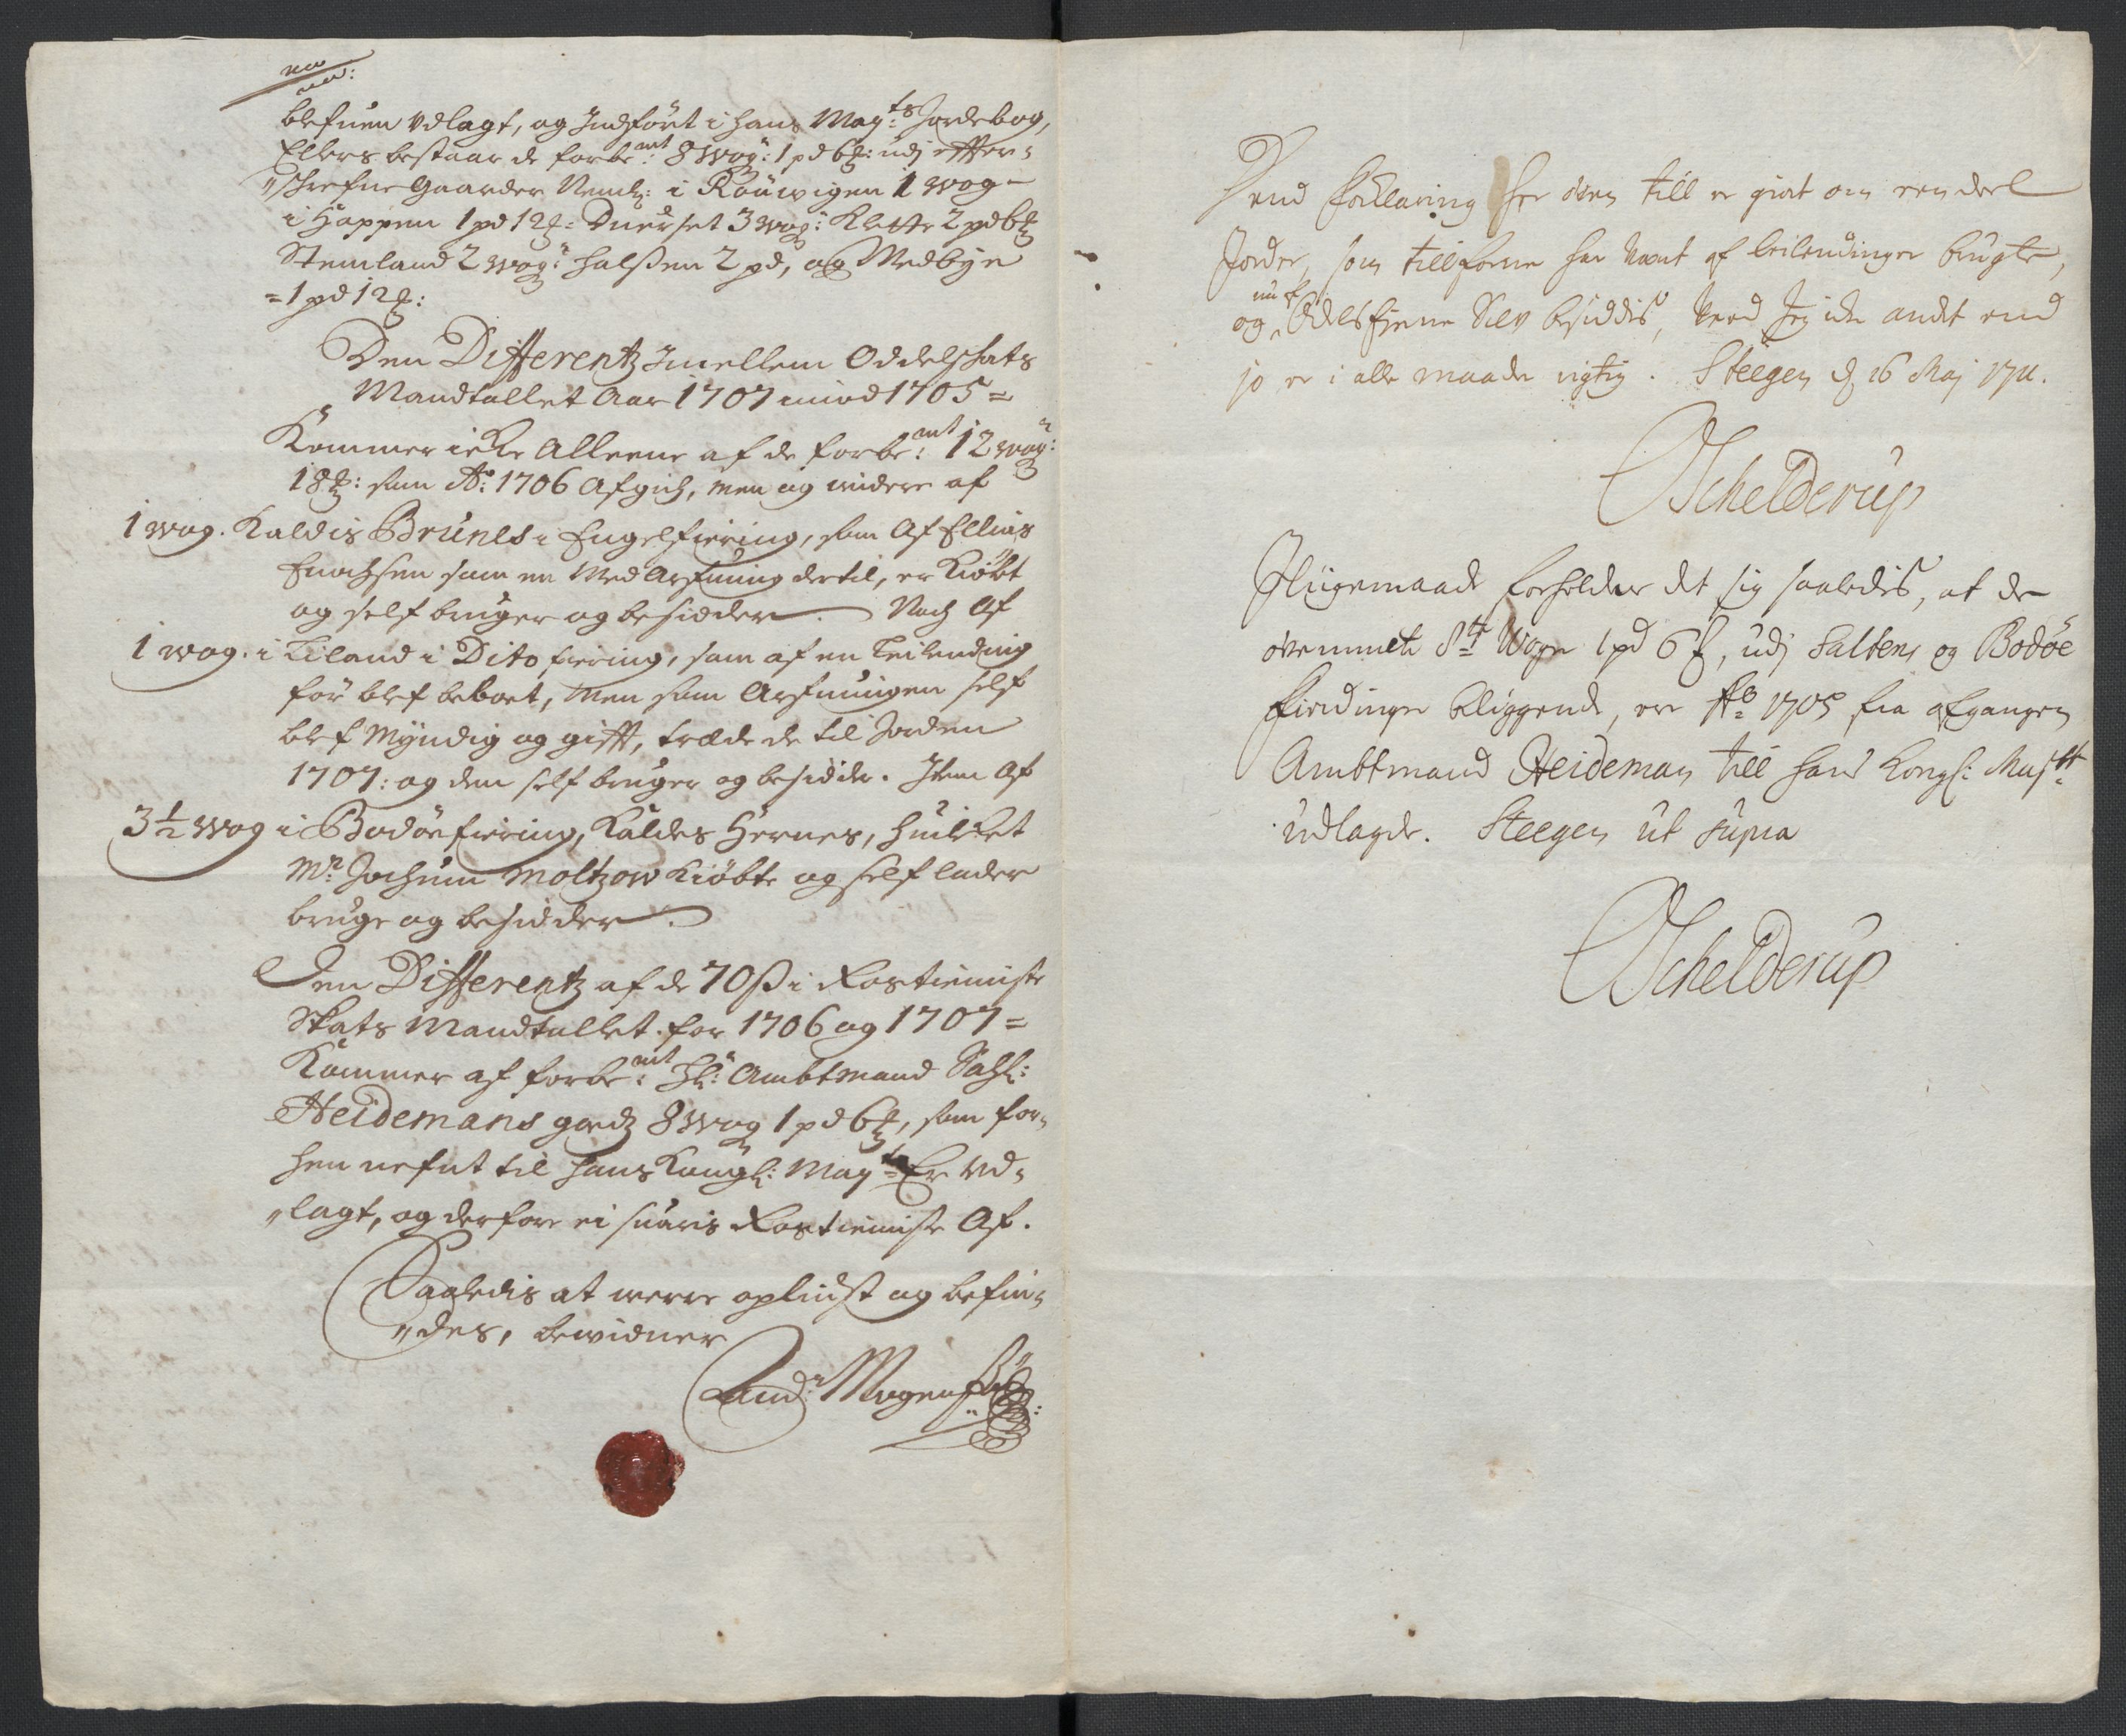 blefuen Vdlagt, og Indført i hans May:ts Jordebog,
Ellers bestaar de forbe:mt 8 wog: 1 pd 6 ℔: udj effter-
schrefne Gaarder Neml: i Rauwigen 1 wog
i Hoppen 1 pd 12 ℔: Duerset 3 wog: Klette 2 pd 6 ℔
Stemland 2 wog: Halsen 2 pd, og Medbye
= 1 pd 12 ℔:
Den Differentz Imellem Oddelschats
Mandtallet Aar 1707 imod 1705 =
Kommer icke Alleene af de forbe:mt 12 wog:
18 ℔: som Ao: 1706 Afgich, men og widere af
1 wog. Kaldis Brunes i Engelfiering, som Af Ellias
Enochsen som en Med Arfuing dertil, er Kiøbt
og self bruger og besidder. Noch Af
1 wog. i Liland i Dito fiering, som af en Leilending
før blef beboet, Men som Arfuingen self
blef Myndig og gifft, træde de til Jorden
1707: og den self bruger og besidder. Item Af
3½ wog i Bodøefiering, Kaldes Hernes, huilket
Mr: Jochum Moltzow Kiøbte og self lader
bruge og besidder.
Den Differentz af de 70 ß i Rostieniste
Skats Mandtallet for 1706 og 1707 =
Kommer af forbe:mt Hr: Ambtmand Sahl:
Heidemans godz 8 wog 1 pd 6 ℔, som for-
hen nefnt til hans Kongl: May:ts Er Vd-
lagt, og derfore ei suaris Rostieniste Af.
Saaledis at werre oplidst og befin-
des, bewidner
And: Mogens
Dend forklaring her oven till er giort om een deel
Jorder, som tillforne har været af leilendinger brugte,
og nu af Odels Eierne Selv besiddis, veed Jeg icke andet end
jo er i alle maade rigtig. Steegen d 16 Maj 1711.
Schelderup
Jligemaade forholder det sig saaledis, at de
ovenmelte 8te Woger 1 pd 6 ℔, udj Saltens og Bodøe
fierdinger beliggende, er Ao 1705 fra afgangen
Ambtmand Heideman till hans Kongl: Majtt
udlagde. Steegen ut supra
Schelderup